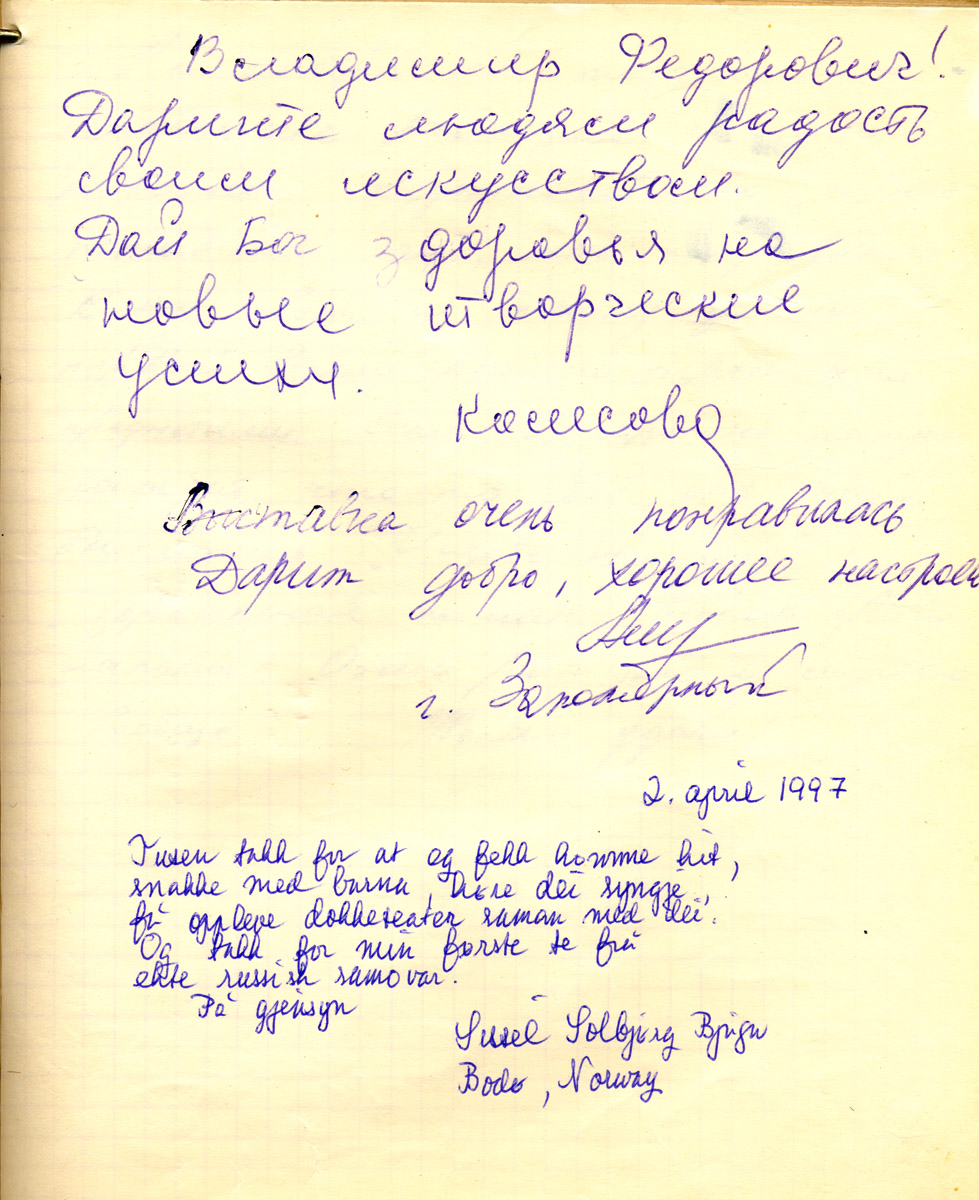 Владимир Федорович!
Дарите людям радость
своим искусством.
Дай Бог здоровья на
новые творческие
успехи.
Выставка очень понравилась
Дарит добро, хорошее настроен
г. Заполярный
2. april 1997
Tusen takk for at eg fekk komme hit,
snakke med barna, høre dei syngje,
få oppleve dokketeater saman med dei.
Og takk for min første te frå
ekte russisk samovar.
På gjensyn
Sissel Solbjørg Bjugn
Bodø, Norway